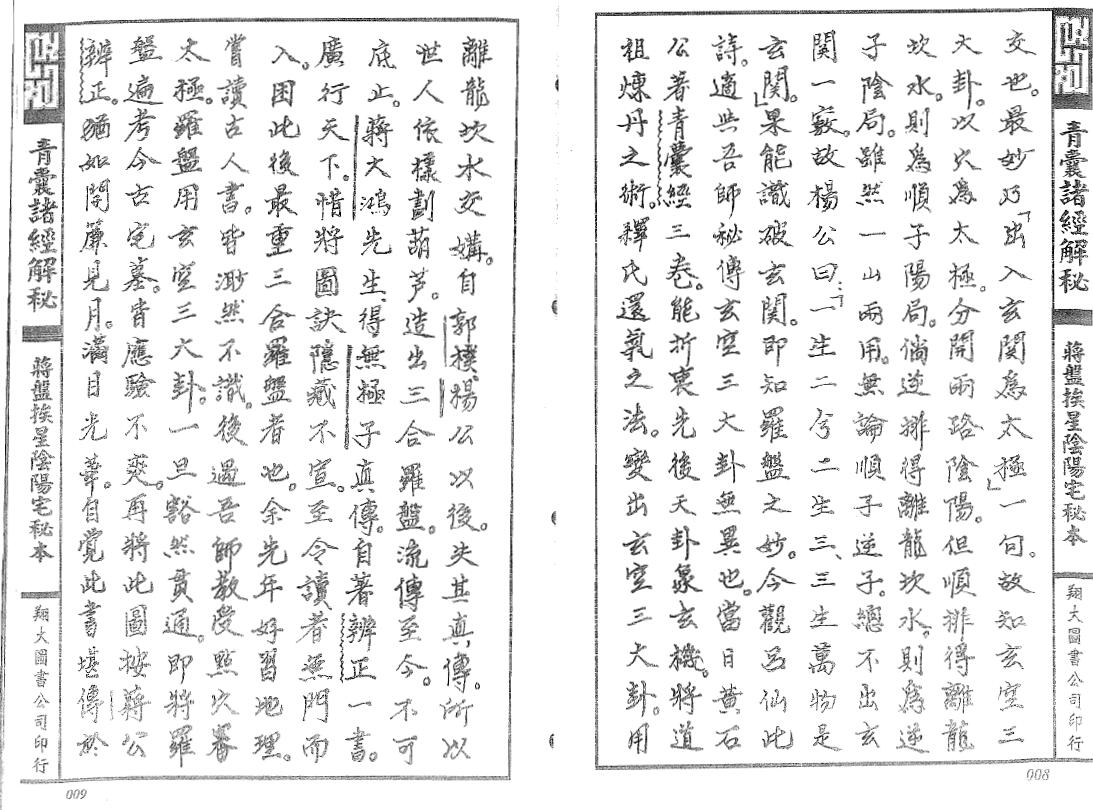 青囊諸經解秘
蔣盤挨星陰陽宅秘本
翔大圖書公司印行
交也。最妙乃「出入玄關為太極」一句。故知玄空三
大卦。以穴為太極。分開兩路陰陽。但順排得離龍
坎水。則為順子陽局。倘逆排得離龍坎水。則為逆
子陰局。雖然一山兩用。無論順子逆子。總不出玄
關一竅。故楊公曰：「一生二兮二生三、三生萬物是
玄關。」果能識破玄關。即知羅盤之妙。今觀呂仙此
詩。適與吾師秘傳玄空三大卦無異也。當日黃石
公著青囊經三卷。能折衷先後天卦象玄機。將道
祖煉丹之術。釋氏還氣之法。變出玄空三大卦。用
008
離龍坎水交媾。自郭樸楊公以後。失其真傳。所以
世人依樣劃葫芦。造出三合羅盤。流傳至今。不可
底止。蔣大鴻先生、得無極子真傳。自著辨正一書。
廣行天下。惜將圖訣隱藏不宣。至令讀者無門而
入。因此後最重三合羅盤者也。余先年好習地理。
嘗讀古人書。皆渺然不識。後遇吾師教受點穴審
太極。羅盤用玄空三大卦。一旦豁然貫通。即將羅
盤遍考今古宅墓。皆應驗不爽。再將此圖按蔣公
辨正。猶如開簾見月。滿目光華。自覺此書堪傳於
青囊諸經解秘
蔣盤挨星陰陽宅秘本
翔大圖書公司印行
009